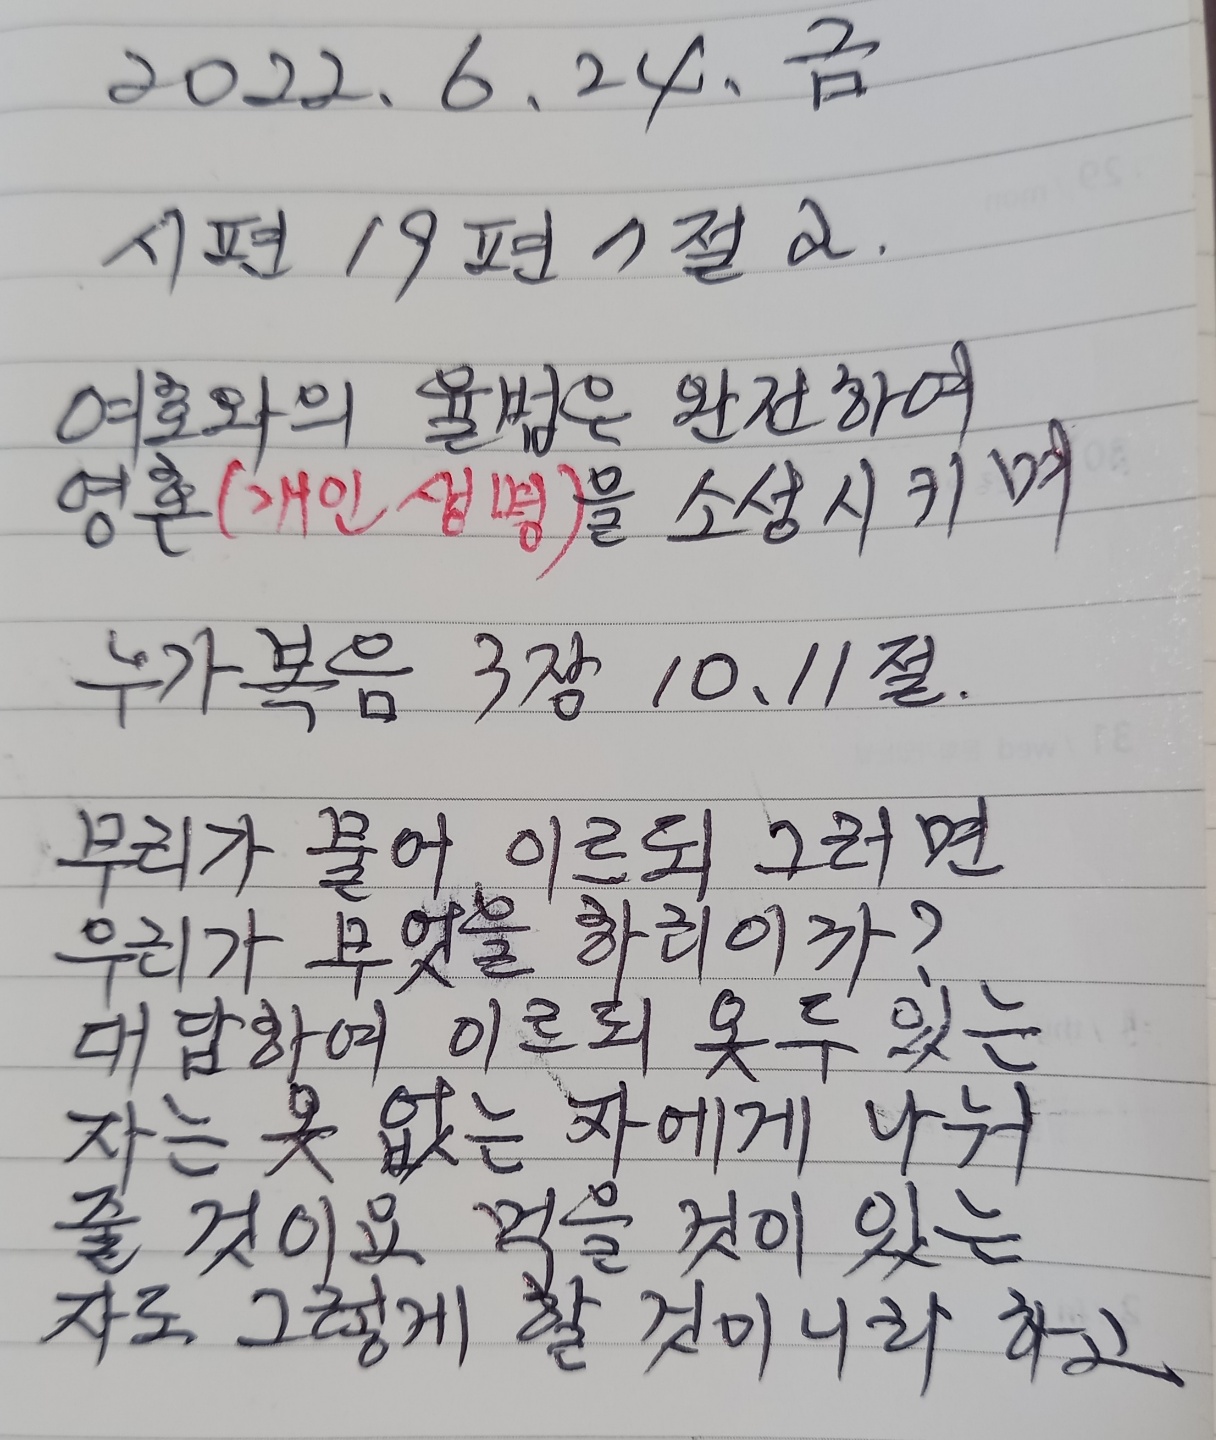 2022. 6. 24. 금
시편 19편 7절 2.
여호와의 율법은 완전하여
영혼(개인 생명)을 소생시키며
누가복음 3장 10.11절.
무리가 물어 이르되 그러면
우리가 무엇을 하리이까?
대답하여 이르되 옷 두 있는
자는 옷 없는 자에게 나눠
줄 것이요 먹을 것이 있는
자도 그렇게 할 것이니라 하고